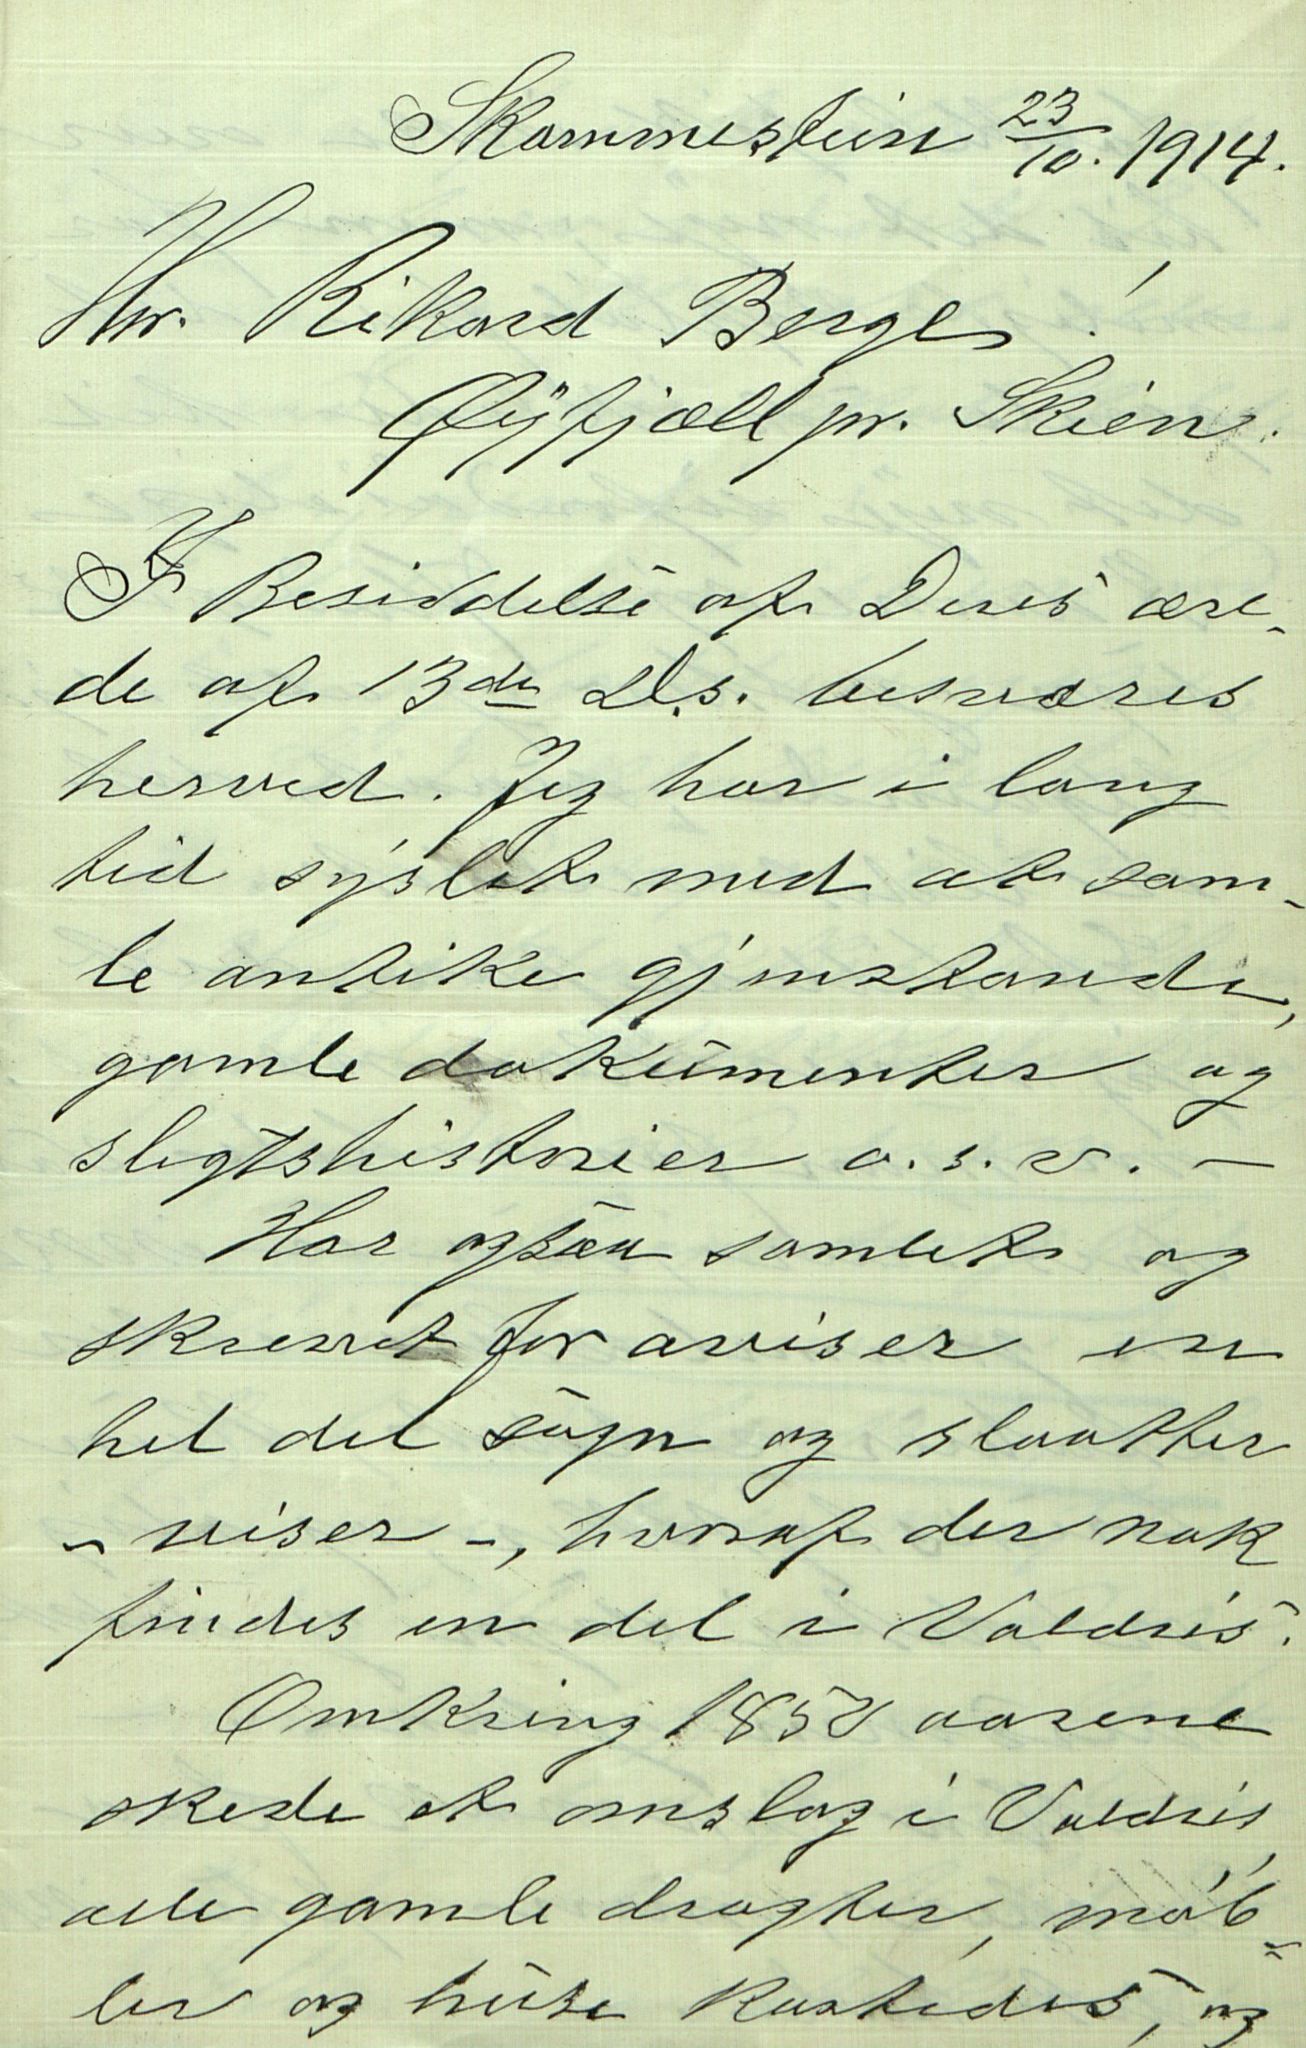 Skammestein 23/10. 1914.
Hr. Rikard Berge!
Øyfjæll pr. Skien.
I Besiddelse af Deres ære-
de af 13de Ds. besvares
herved. Jeg har i lang
tid syslet med at sam-
le antike gjenstande,
gamle dokumenter og
slegtshistorier o.s.v. -
Har ogsaa samlet og
skrevet for aviser en
hel del sagn og slaatter
- viser -, hvoraf der nok
findes en del i Valdris.
Omkring 1850 aarene
skede et omslag i Valdris,
alle gamle dragter, møb-
ler og huse kastedes, og